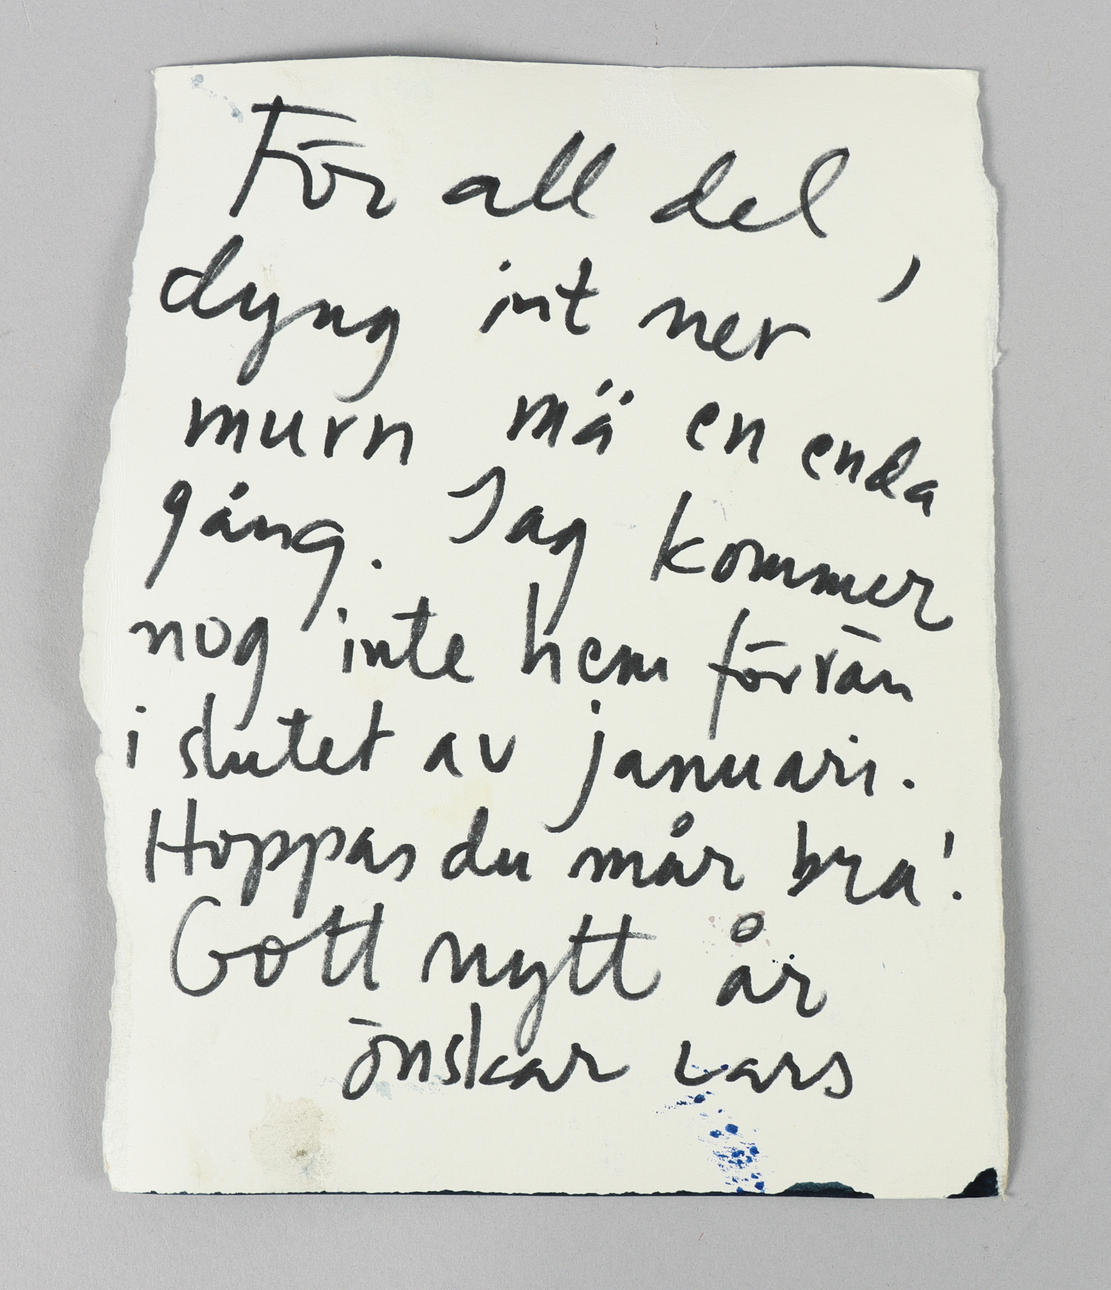 För all del,
dyng int ner
murn mä en enda
gång. Jag kommer
nog inte hem förrän
i slutet av januari.
Hoppas du mår bra!
Gott nytt år
önskar Lars